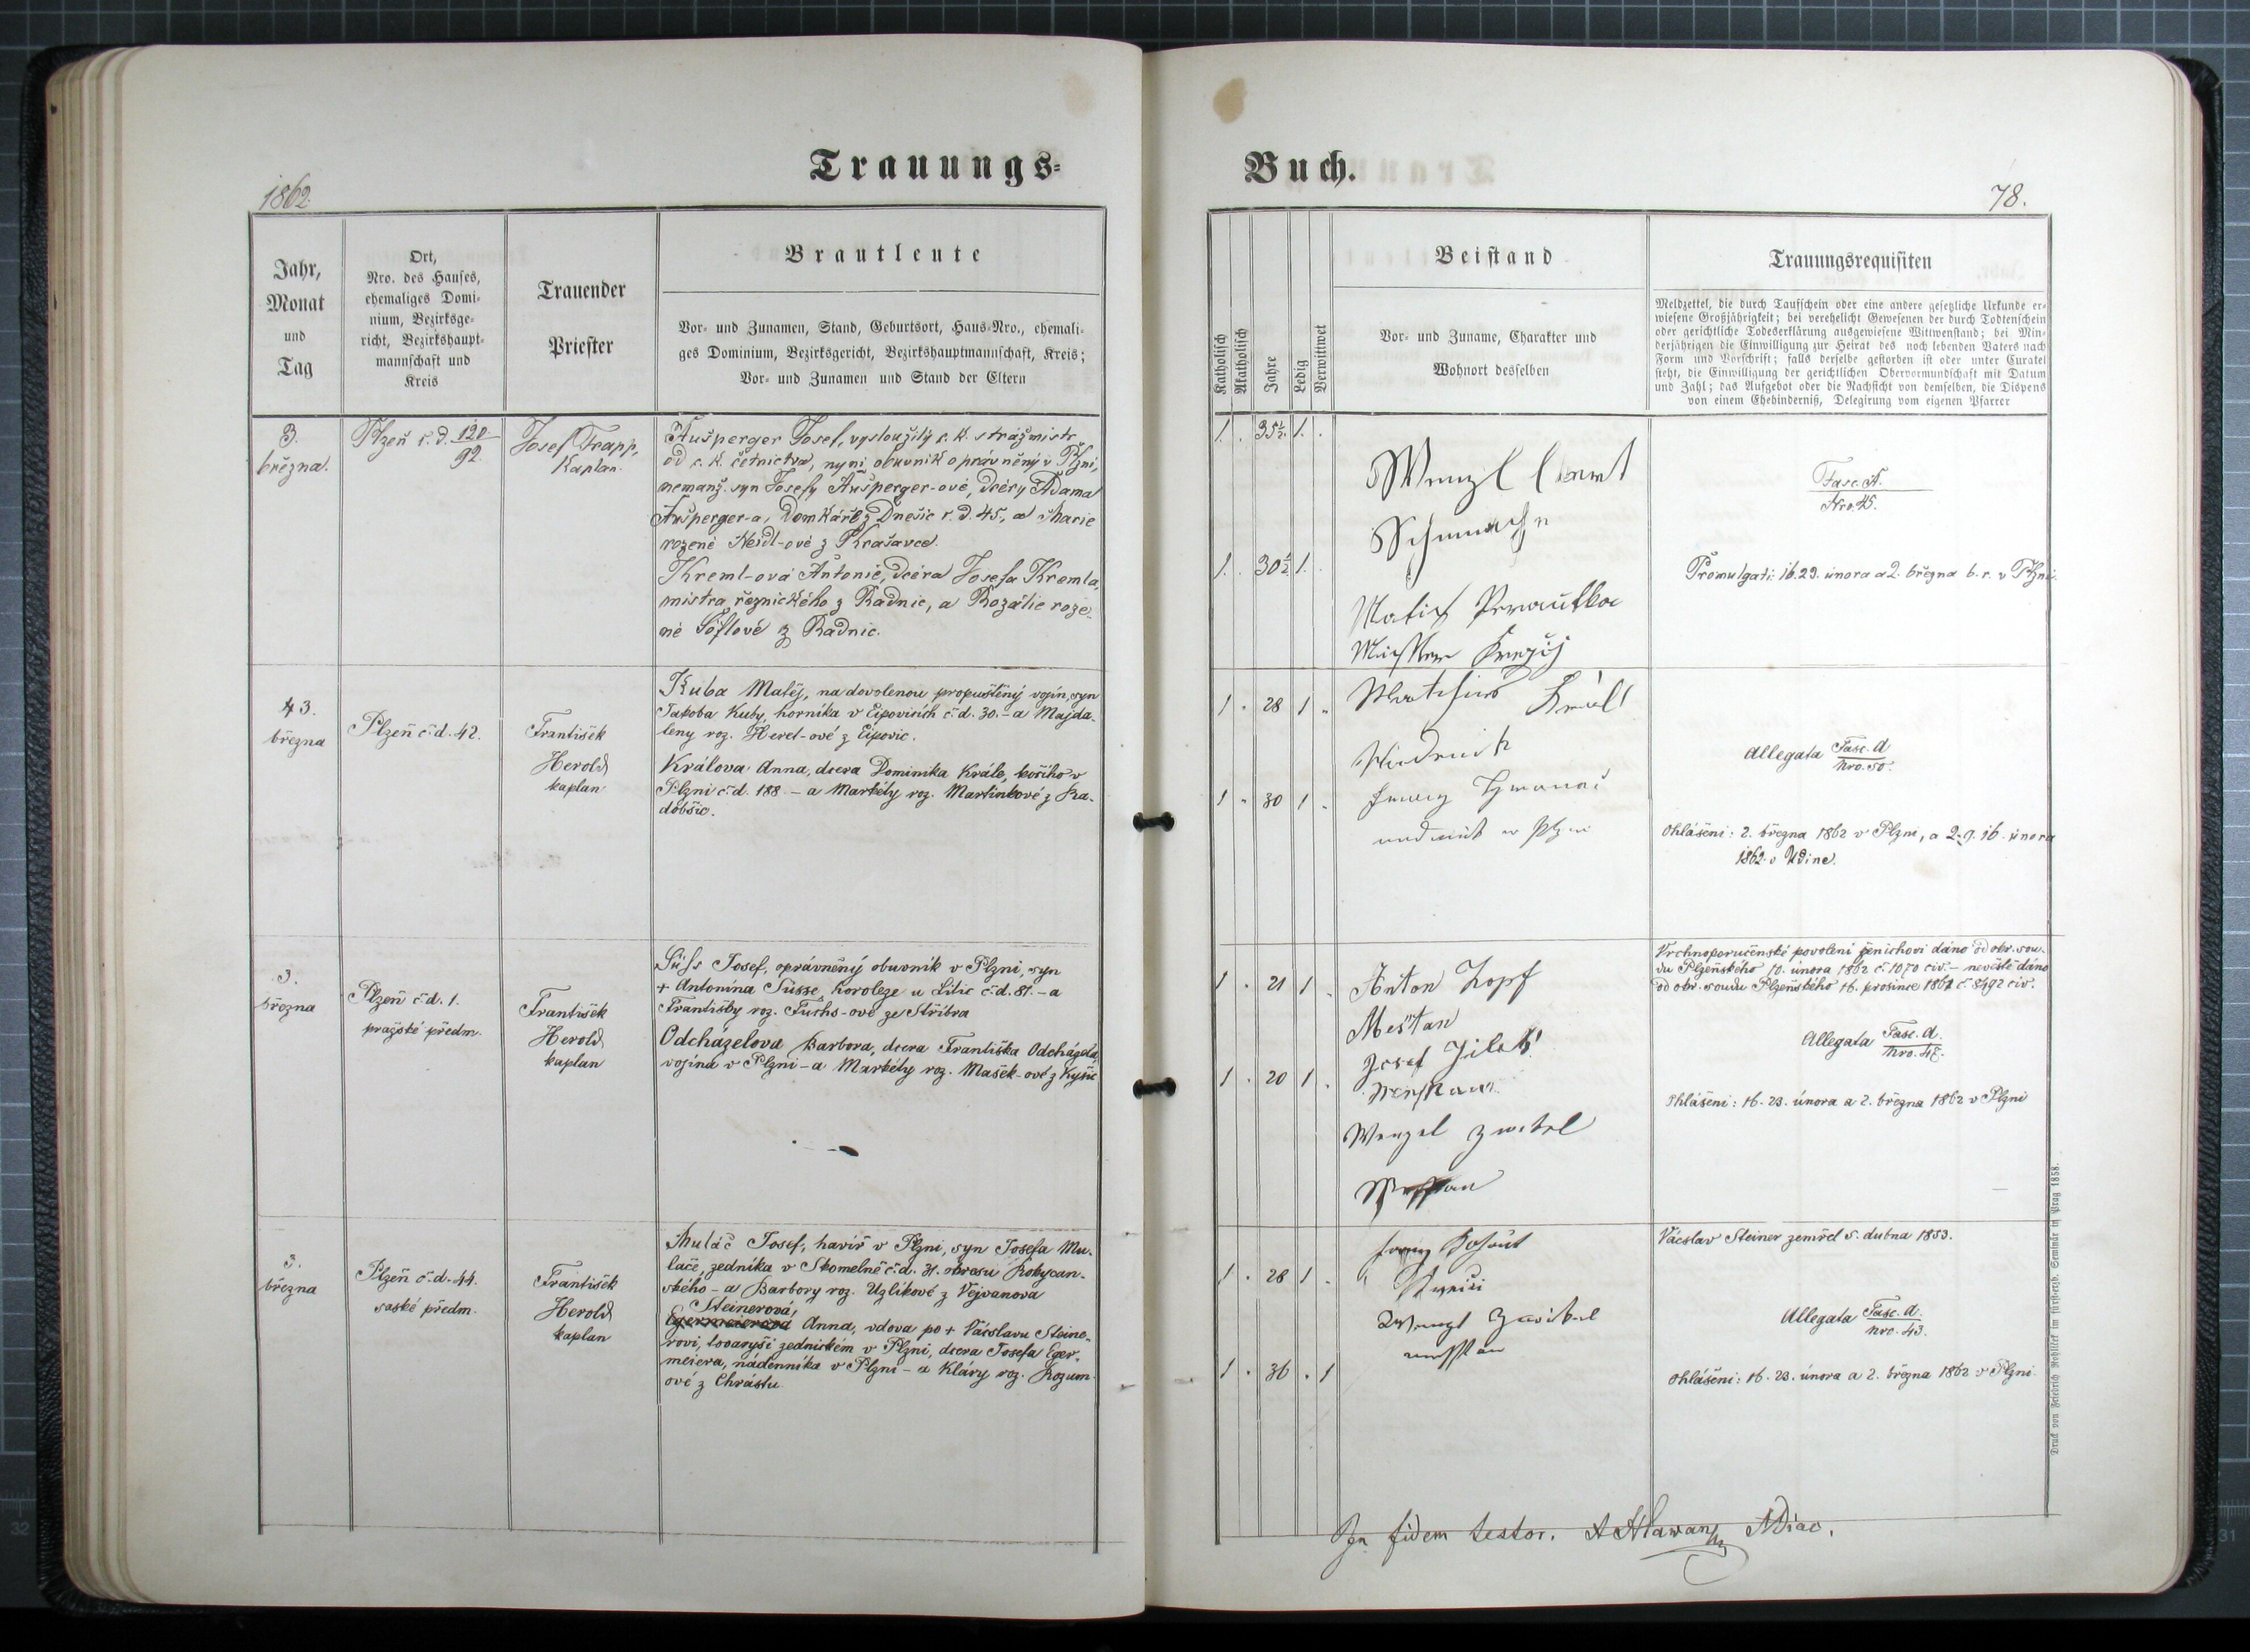 Trauungs-
1862.
Jahr,
Monat
und
Tag
Ort,
Nro. des Hauses,
ehemaliges Domi-
nium, Bezirksge-
richt, Bezirkshaupt-
mannschaft und
Kreis
Trauender
Priester
Brautleute
Vor- und Zunamen, Stand, Geburtsort, Haus-Nro., ehemali-
ges Dominium, Bezirksgericht, Bezirkshauptmannschaft, Kreis;
Vor- und Zunamen und Stand der Eltern
3.
března.
Plzeň č. d. 120
92.
Josef Trapp,
Kaplan.
Aušperger Josef, vysloužilý c. k. strážmistr
od c. k. četnictva, nyní obuvník oprávněný v Plzni,
nemanž. syn Josefy Aušperger-ové, dcéry Adama
Aušperger-a, domkáře z Dnešic č. d. 45, a Marie
rozené Neidl-ové z
Kreml-ová Antonie, dcéra Josefa Kremla,
mistra řeznického z Radnic, a Rozálie roze-
né z Radnic.
3.
března
Plzeň č. d. 42.
František
Herold
kaplan
Kuba Matěj, na dovolenou propuštěný vojín, syn
Jakoba Kuby, horníka v Ejpovicích č. d. 30. - a Majda-
leny roz. z Ejpovic.
Králova Anna, dcera Dominika Krále, v
Plzni č. d. 188. - a Markéty roz. Martinkové z
3.
března
Plzeň č. d. 1.
pražské předm.
František
Herold
kaplan
Süss Josef, oprávněný obuvník v Plzni, syn
+ Antonína Süsse, u Litic č. d. 81. - a
Františky roz. Fuchs-ové ze Stříbra
Odcházelova Barbora, dcera Františka Odcházela,
vojína v Plzni - a Markéty roz. Mašek-ové z Kyšic
3.
března
Plzeň č. d. 44.
saské předm.
František
Herold
kaplan
Mulač Josef, havíř v Plzni, syn Josefa Mu-
lače, zedníka v Skomelně č. d. 31. okresu Rokycan-
ského - a Barbory roz. Uzlíkové z Vejvanova
Steinerová,
Egermeierová Anna, vdova po + Václavu Steine-
rovi, tovaryši zednickém v Plzni, dcera Josefa Eger-
meiera, nádenníka v Plzni - a Kláry roz. Rozum-
ové z Chrástu
Buch.
78.
Katholisch
Akatholisch
Jahre
Ledig
Verwittwet
Beistand
Vor- und Zuname, Charakter und
Wohnort desselben
Trauungsrequisiten
Meldzettel, die durch Taufschein oder eine andere gesetzliche Urkunde er-
wiesene Großjährigkeit; bei verehelicht Gewesenen der durch Todtenschein
oder gerichtliche Todeserklärung ausgewiesene Wittwenstand; bei Min-
derjährigen die Einwilligung zur Heirat des noch lebenden Vaters nach
Form und Vorschrift; falls derselbe gestorben ist oder unter Curatel
steht, die Einwilligung der gerichtlichen Obervormundschaft mit Datum
und Zahl; das Aufgebot oder die Nachsicht von demselben, die Dispens
von einem Ehehinderniß, Delegirung vom eigenen Pfarrer
1. . 35½. 1. .
Wenzl
1. . 30½ 1. .
Fasc. A.
Nro. 45.
Promulgati: 16. 23. února a 2. března b. r. v Plzni.
1 . 28 1 .
1 . 30 1 .
Mathias Králl
v Plzni
Allegata Fasc. A
Nro. 50.
Ohlášení: 2. března 1862 v Plzni, a 2. 9. 16. února
1862 v Udine.
1 . 21 1 .
1 . 20 1 .
Anton Zopf
Mestan
Josef
Wenzel
Vrchnoporučenské povolení ženichovi dáno od okr. sou-
du Plzeňského 10. února 1862 č. 1070 civ. - nevěstě dáno
od okr. soudu Plzeňského 16. prosince 1861 č. 8492 civ.
Allegata Fasc. A.
Ohlášení: 16. 23. února a 2. března 1862 v Plzni
1 . 28 1 .
1 . 36 . 1
Wenzl
Václav Steiner zemřel 5. dubna 1853.
Allegata Fasc. A.
Nro. 43.
Ohlášení: 16. 23. února a 2. března 1862 v Plzni
In fidem testor.
Druck von Friedrich Rohliček im fürsterzb. Seminär in Prag 1858.
32
31